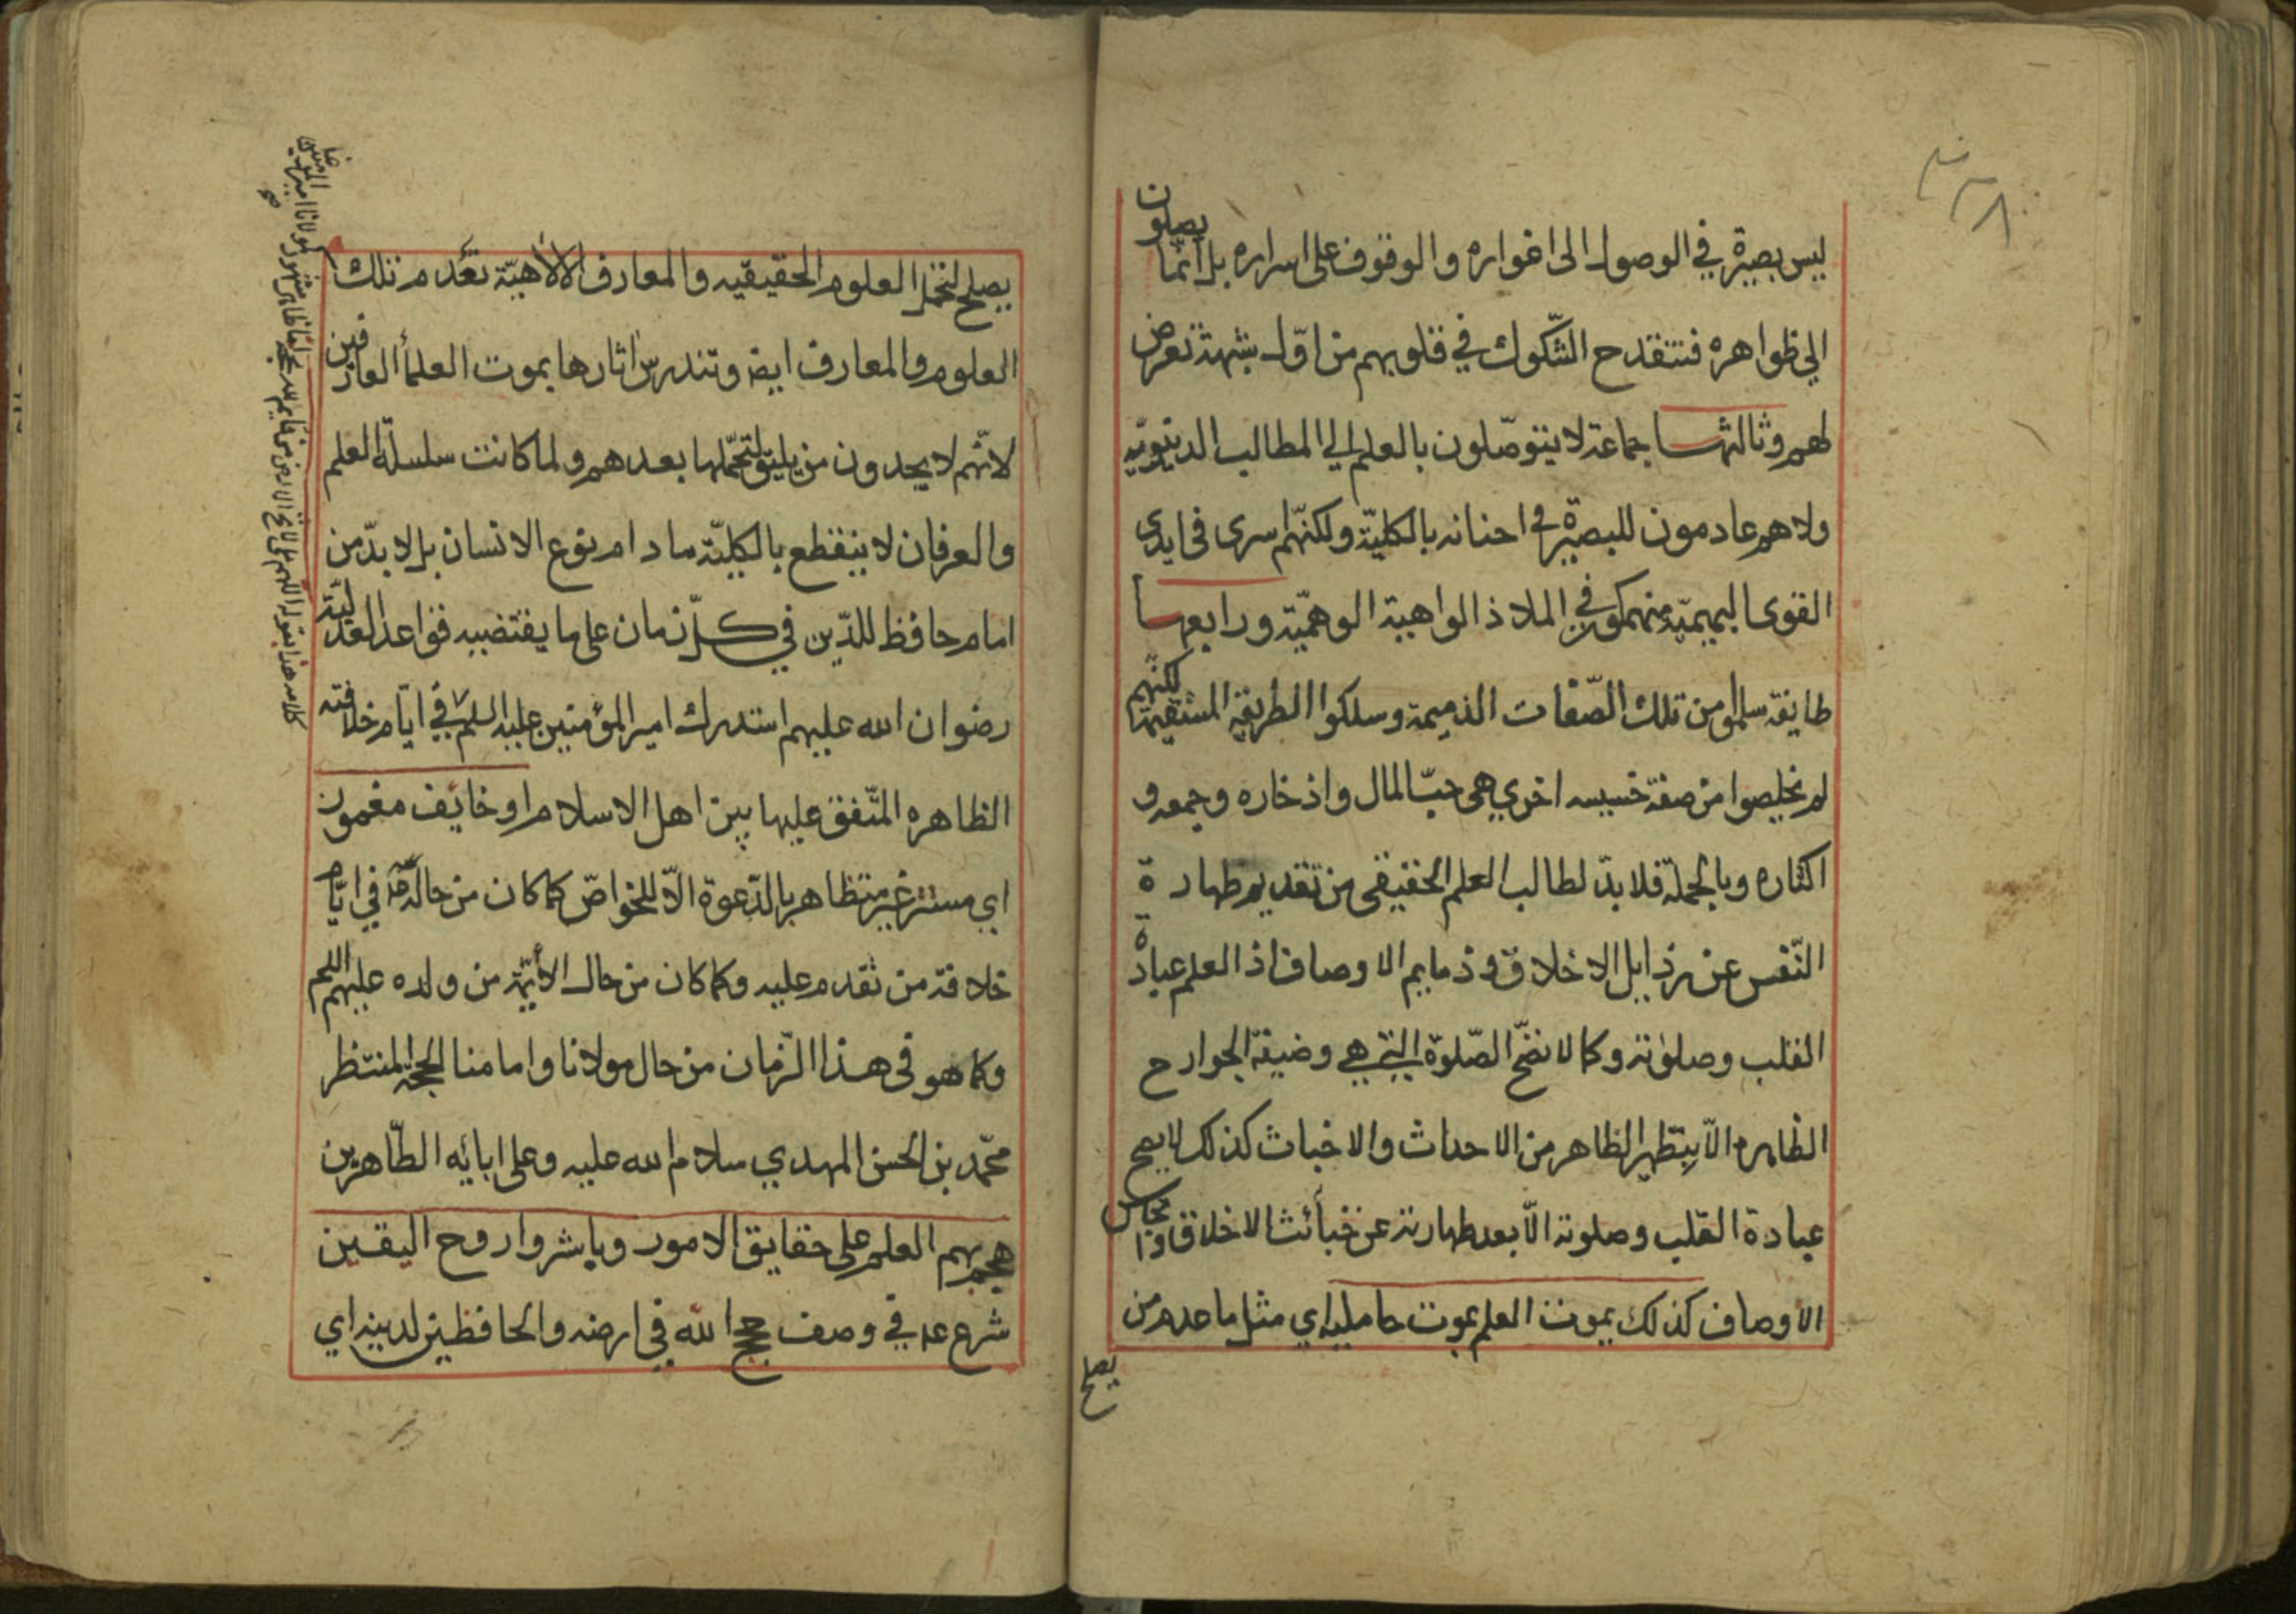 ليس بصيرة في الوصول الى اغواره والوقوف على اسراره بل انّما يصلون
الي ظواهره فتنقدح الشّكوك في قلوبهم من اوّل شبهة تعرض
لهم وثالثها جماعة لا يتوصّلون بالعلم الي المطالب الدنيويّه
ولا هم عادمون للبصيرة في احنائه بالكليّة ولكنّهم اسرى في ايدى
القوى البهيميّة منهمكون في الملاذ الواهية الوهميّة ورابعها
طايفة سلموا من تلك الصّفات الذميمة وسلكوا الطريقة المستقيمة لكنّهم
لم يخلصوا من صفة خسيسه اخري هى حبّ المال واذخاره وجمعه و
اكثاره وبالجملة فلا بدّ لطالب العلم الحقيقى من تقديم طهارة
النّفس عن رذايل الاخلاق وذمايم الاوصاف اذ العلم عبادة
القلب وصلوته وكما لا تصحّ الصّلوة التي هي وضيفة الجوارح
الظاهره الّا بتطهير الظاهر من الاحداث والاخباث كذلك لا يصح
عبادة القلب وصلوته الّا بعد طهارته عن خبائث الاخلاق وانجاس
الاوصاف كذلك يموت العلم بموت حامليه اي مثل ما عدم من
يصلح
يصلح لتحمّل العلوم الحقيقيه والمعارف الالاهيّة تعدم تلك
العلوم والمعارف ايضا وتندرس اثارها بموت العلمأ العارفين
لانّهم لا يجدون من يليق لتحمّلها بعدهم ولما كانت سلسلة العلم
والعرفان لا ينقطع بالكليّة ما دام نوع الانسان بل لا بدّ من
امام حافظ للدّين في كلّ زمان على ما يقتضيه قواعد العدليّة
رضوان الله عليهم استدرك امير المؤمنين عليه السلم في ايّام خلافته
الظاهره المتّفق عليها بين اهل الاسلام او خايف مغمور
اي مستتر غير متظاهر بالدّعوة الّا للخواصّ كما كان من حاله في ايّام
خلافة من تقدم عليه وكما كان من حال الأئمّة من ولده عليهم اللم
وكما هو فى هذا الزّمان من حال مولانا وامامنا الحجة المنتظر
محمّد بن الحسن المهدي سلام الله عليه وعلى ابائه الطّاهرين
هجم بهم العلم على حقايق الامور وباشروا روح اليقين
شرع عم في وصف حجج الله في ارضه والحافظين لدينه اي
كلامه هذا بقوله اللهم بلى لا تخ الارض من قايم لله بحجة اما ظاهر مشهور كمولانا امير المومنين
صح